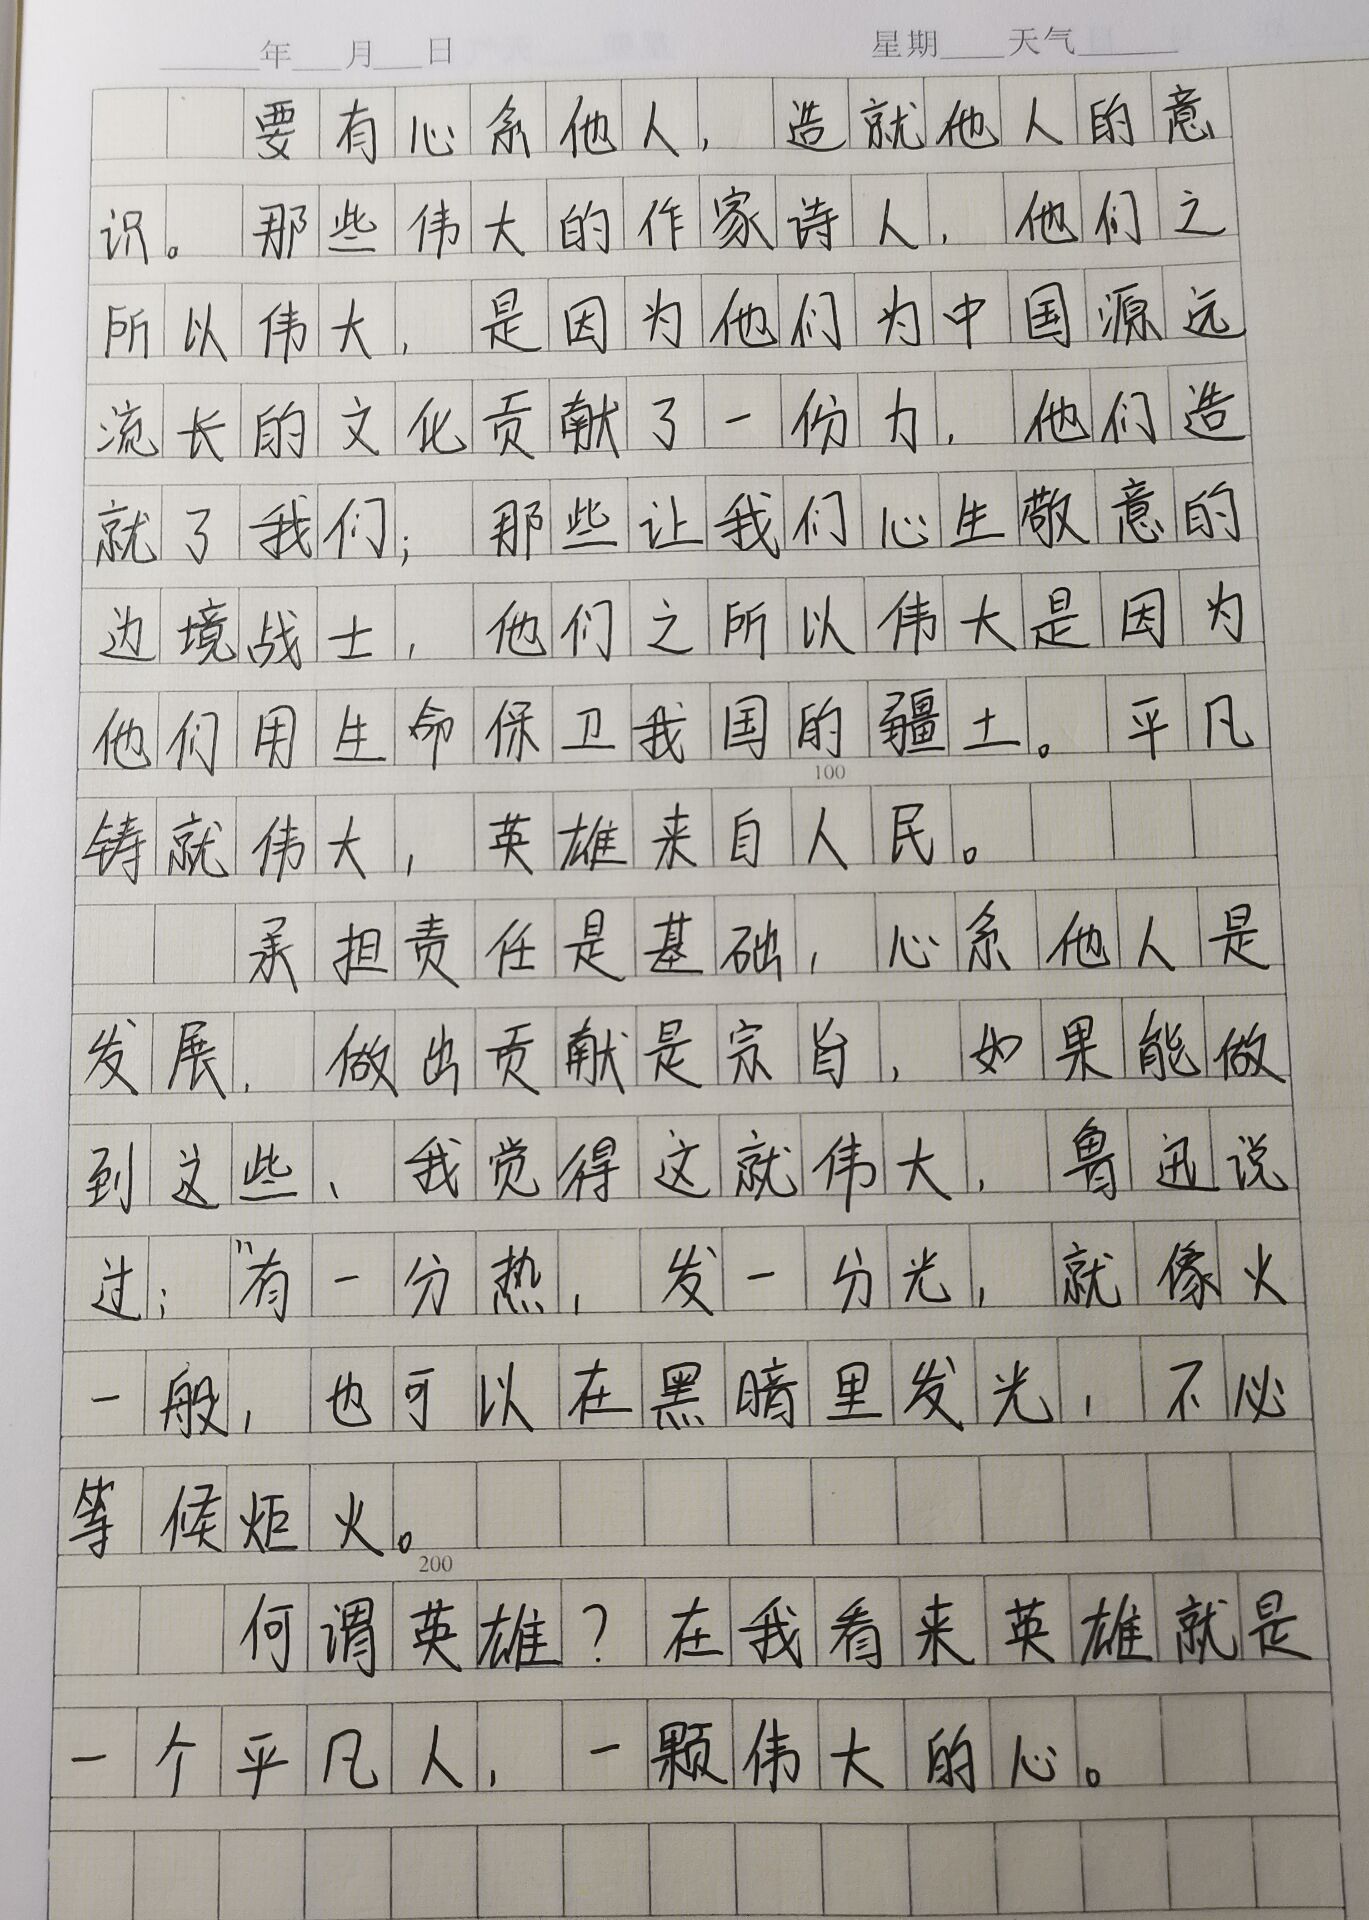 ____年___月___日 星期____天气______
要有心系他人，造就他人的意
识。那些伟大的作家诗人，他们之
所以伟大，是因为他们为中国源远
流长的文化贡献了一份力，他们造
就了我们；那些让我们心生敬意的
边境战士，他们之所以伟大是因为
他们用生命保卫我国的疆土。平凡
100
铸就伟大，英雄来自人民。
承担责任是基础，心系他人是
发展，做出贡献是宗旨，如果能做
到这些、我觉得这就伟大，鲁迅说
过；“有一分热，发一分光，就像火
一般，也可以在黑暗里发光，不必
等候炬火。
200
何谓英雄？在我看来英雄就是
一个平凡人，一颗伟大的心。